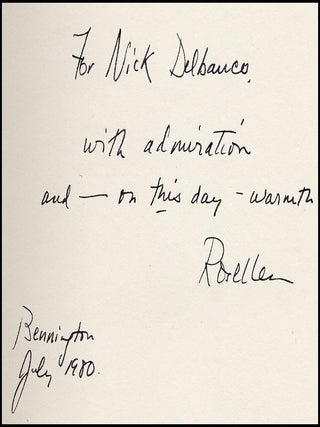 For Nick Delbanco,
with admiration
and — on this day – warmth
Rosellen
Bennington
July 1980.